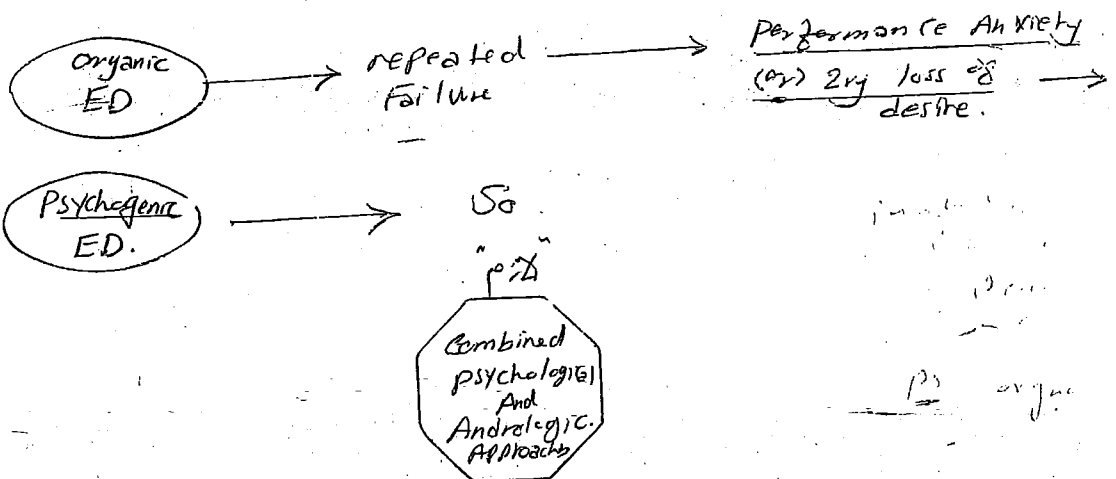 organic
ED
repeated
Failure
Performance Anxiety
(or) 2ry loss of
desire.
Psychogenic
ED.
So
Combined
psychological
And
Andrologic.
Approachs